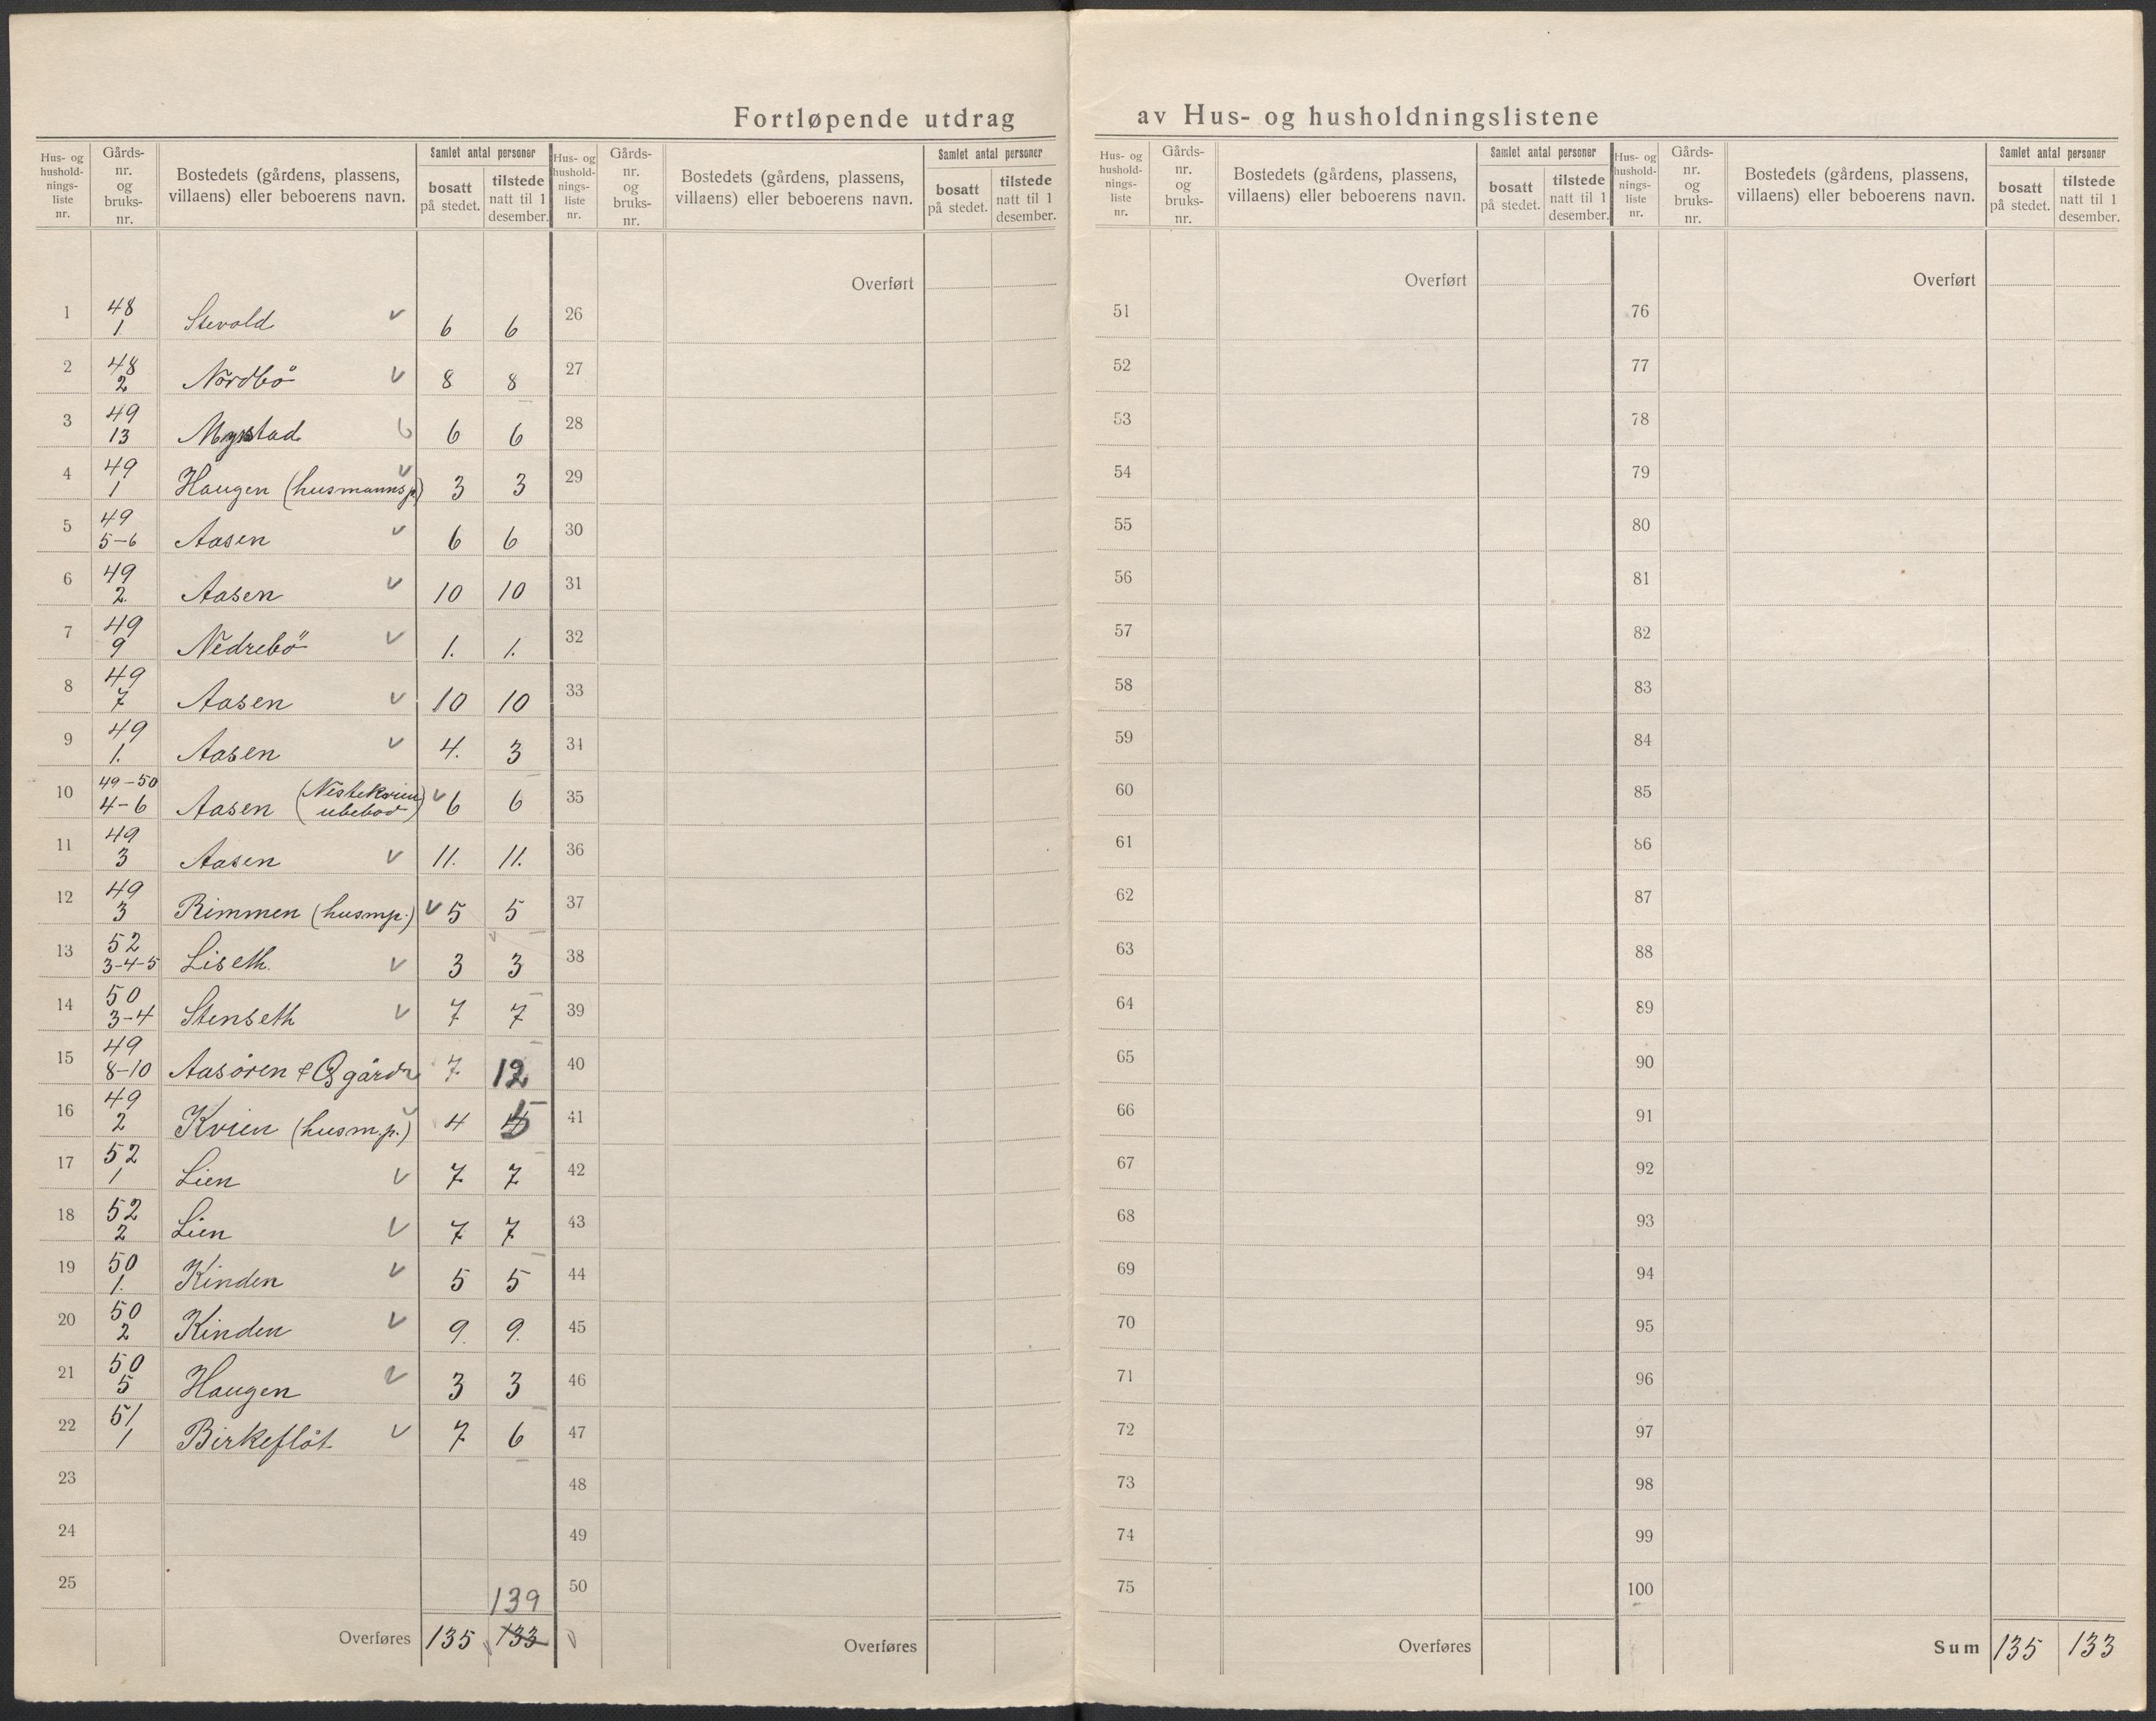 Fortløpende utdrag av Hus- og husholdningslistene
Hus- og husholdningsliste nr. | Gårdsnr. og bruksnr. | Bostedets (gårdens, plassens, villaens) eller beboerens navn. | Samlet antal personer | bosatt på stedet. | tilstede natt til 1 desember.
1 | 48 1. | Stevold | v | 6 | 6
2 | 48 2 | Nordbö | v | 8 | 8
3 | 49 13 | Myrstad | 6 | 6
4 | 49 1 | Haugen (husmannsp.) | v | 3 | 3
5 | 49 5-6 | Aasen | v | 6 | 6
6 | 49 2. | Aasen | v | 10 | 10
7 | 49 9 | Nedrebö | v | 1. | 1.
8 | 49 7 | Aasen | v | 10 | 10
9 | 49 1. | Aasen | v | 4. | 3
10 | 49-50 4-6 | Aasen (Nestekvien ubebod) | v | 6 | 6
11 | 49 3 | Aasen | v | 11. | 11.
12 | 49 3 | Rimmen (husmp.) | v | 5 | 5
13 | 52 3-4-5 | Liseth. | v | 3 | 3
14 | 50 3-4 | Stenseth | v | 7 | 7
15 | 49 8-10 | Aasören & | 7 | 12
16 | 49 2 | Kvien (husm.p.) | v | 4 | 5
17 | 52 1 | Lien | v | 7 | 7
18 | 52 2 | Lien | v | 7 | 7
19 | 50 1. | Kinden | v | 5 | 5
20 | 50 2 | Kinden | v | 9. | 9.
21 | 50 5 | Haugen | v | 3 | 3
22 | 51 1 | Birkeflöt | v | 7 | 6
23
24
25
139
Overføres | 135 | 133
Hus- og husholdningsliste nr. | Gårdsnr. og bruksnr. | Bostedets (gårdens, plassens, villaens) eller beboerens navn. | Samlet antal personer | bosatt på stedet. | tilstede natt til 1 desember.
Overført
26
27
28
29
30
31
32
33
34
35
36
37
38
39
40
41
42
43
44
45
46
47
48
49
50
Overføres
Hus- og husholdningsliste nr. | Gårdsnr. og bruksnr. | Bostedets (gårdens, plassens, villaens) eller beboerens navn. | Samlet antal personer | bosatt på stedet. | tilstede natt til 1 desember.
Overført
51
52
53
54
55
56
57
58
59
60
61
62
63
64
65
66
67
68
69
70
71
72
73
74
75
Overføres
Hus- og husholdningsliste nr. | Gårdsnr. og bruksnr. | Bostedets (gårdens, plassens, villaens) eller beboerens navn. | Samlet antal personer | bosatt på stedet. | tilstede natt til 1 desember.
Overført
76
77
78
79
80
81
82
83
84
85
86
87
88
89
90
91
92
93
94
95
96
97
98
99
100
Sum | 135 | 133